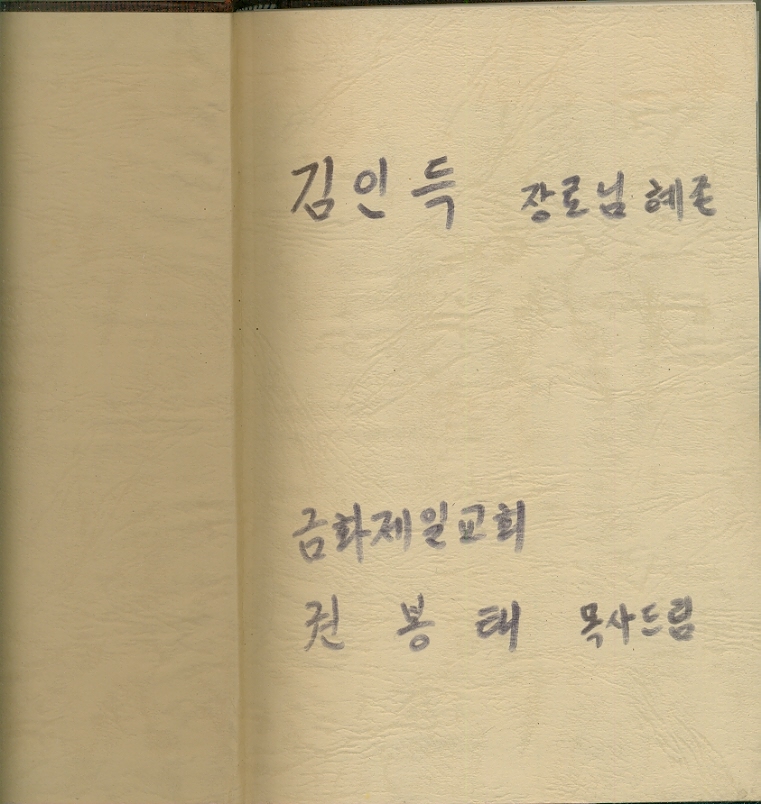 김인득 장로님 혜존
금화제일교회
권봉태 목사드림